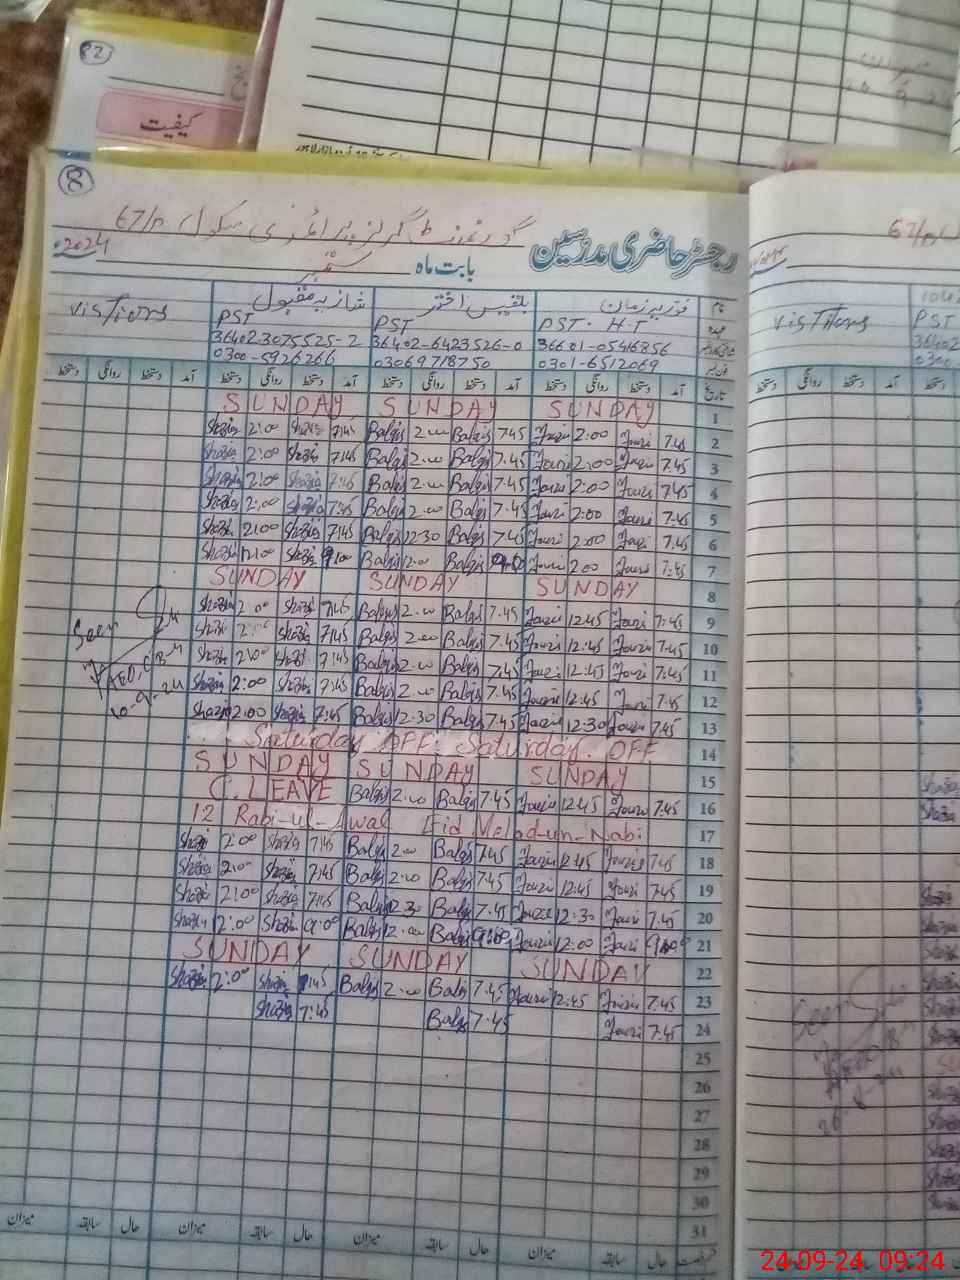 82
کیفیت
8
گورنمنٹ گرلز پرائمری سکول 67/M
رجسٹر حاضری مدرسین
بابت ماہ ستمبر 2024
نام فوزیہ زمان بلقیس اختر شازیہ مقبول Vistiors
عہدہ PST. H.T PST PST
36402.3075525-2 36402-6423526-0 36601-05416856
0300-5926266 03069718750 0301-6512069
تاریخ آمد دستخط روانگی دستخط آمد دستخط روانگی دستخط آمد دستخط روانگی دستخط آمد دستخط روانگی دستخط
SUNDAY SUNDAY SUNDAY 1
Shazia 2:00 Shazia 7:45 Balqis 2:00 Balqis 7:45 Fouzi 2:00 Fouzi 7:45 2
Shazia 2:00 Shazia 7:45 Balqis 2:00 Balqis 7:45 Fouzi 2:00 Fouzi 7:45 3
Shazia 2:00 Shazia 7:45 Balqis 2:00 Balqis 7:45 Fouzi 2:00 Fouzi 7:45 4
Shazia 2:00 Shazia 7:45 Balqis 2:00 Balqis 7:45 Fouzi 2:00 Fouzi 7:45 5
Shazia 2:00 Shazia 7:45 Balqis 12:30 Balqis 7:45 Fouzi 2:00 Fouzi 7:45 6
Shazia 12:00 Shazia 9:00 Balqis 12:00 Balqis 9:00 Fouzi 2:00 Fouzi 7:45 7
SUNDAY SUNDAY SUNDAY 8
Shazia 2:00 Shazia 7:45 Balqis 2:00 Balqis 7:45 Fouzi 12:45 Fouzi 7:45 9
Seen Shazia 2:00 Shazia 7:45 Balqis 2:00 Balqis 7:45 Fouzi 12:45 Fouzi 7:45 10
Shazia 2:00 Shazia 7:45 Balqis 2:00 Balqis 7:45 Fouzi 12:45 Fouzi 7:45 11
AEO, Shazia 2:00 Shazia 7:45 Balqis 2:00 Balqis 7:45 Fouzi 12:45 Fouzi 7:45 12
10-9-24 Shazia 2:00 Shazia 7:45 Balqis 12:30 Balqis 7:45 Fouzi 12:30 Fouzi 7:45 13
Saturday OFF Saturday OFF 14
SUNDAY SUNDAY SUNDAY 15
C.LEAVE Balqis 2:00 Balqis 7:45 Fouzi 12:45 Fouzi 7:45 16
12 Rabi-ul-Awal Eid Melad-un-Nabi 17
Shazia 2:00 Shazia 7:45 Balqis 2:00 Balqis 7:45 Fouzi 12:45 Fouzi 7:45 18
Shazia 2:00 Shazia 7:45 Balqis 2:00 Balqis 7:45 Fouzi 12:45 Fouzi 7:45 19
Shazia 2:00 Shazia 7:45 Balqis 12:30 Balqis 7:45 Fouzi 12:30 Fouzi 7:45 20
Shazia 12:00 Shazia 9:00 Balqis 12:00 Balqis 9:00 Fouzi 12:00 Fouzi 9:00 21
SUNDAY SUNDAY SUNDAY 22
Shazia 2:00 Shazia 7:45 Balqis 2:00 Balqis 7:45 Fouzi 12:45 Fouzi 7:45 23
Shazia 7:45 Balqis 7:45 Fouzi 7:45 24
25
26
27
28
29
30
31
حال سابقہ میزان حال سابقہ میزان حال سابقہ میزان حال سابقہ میزان
67/M
VisTitors
PST
36402
0300
دستخط روانگی دستخط آمد دستخط
Seen
24-09-24 09:24